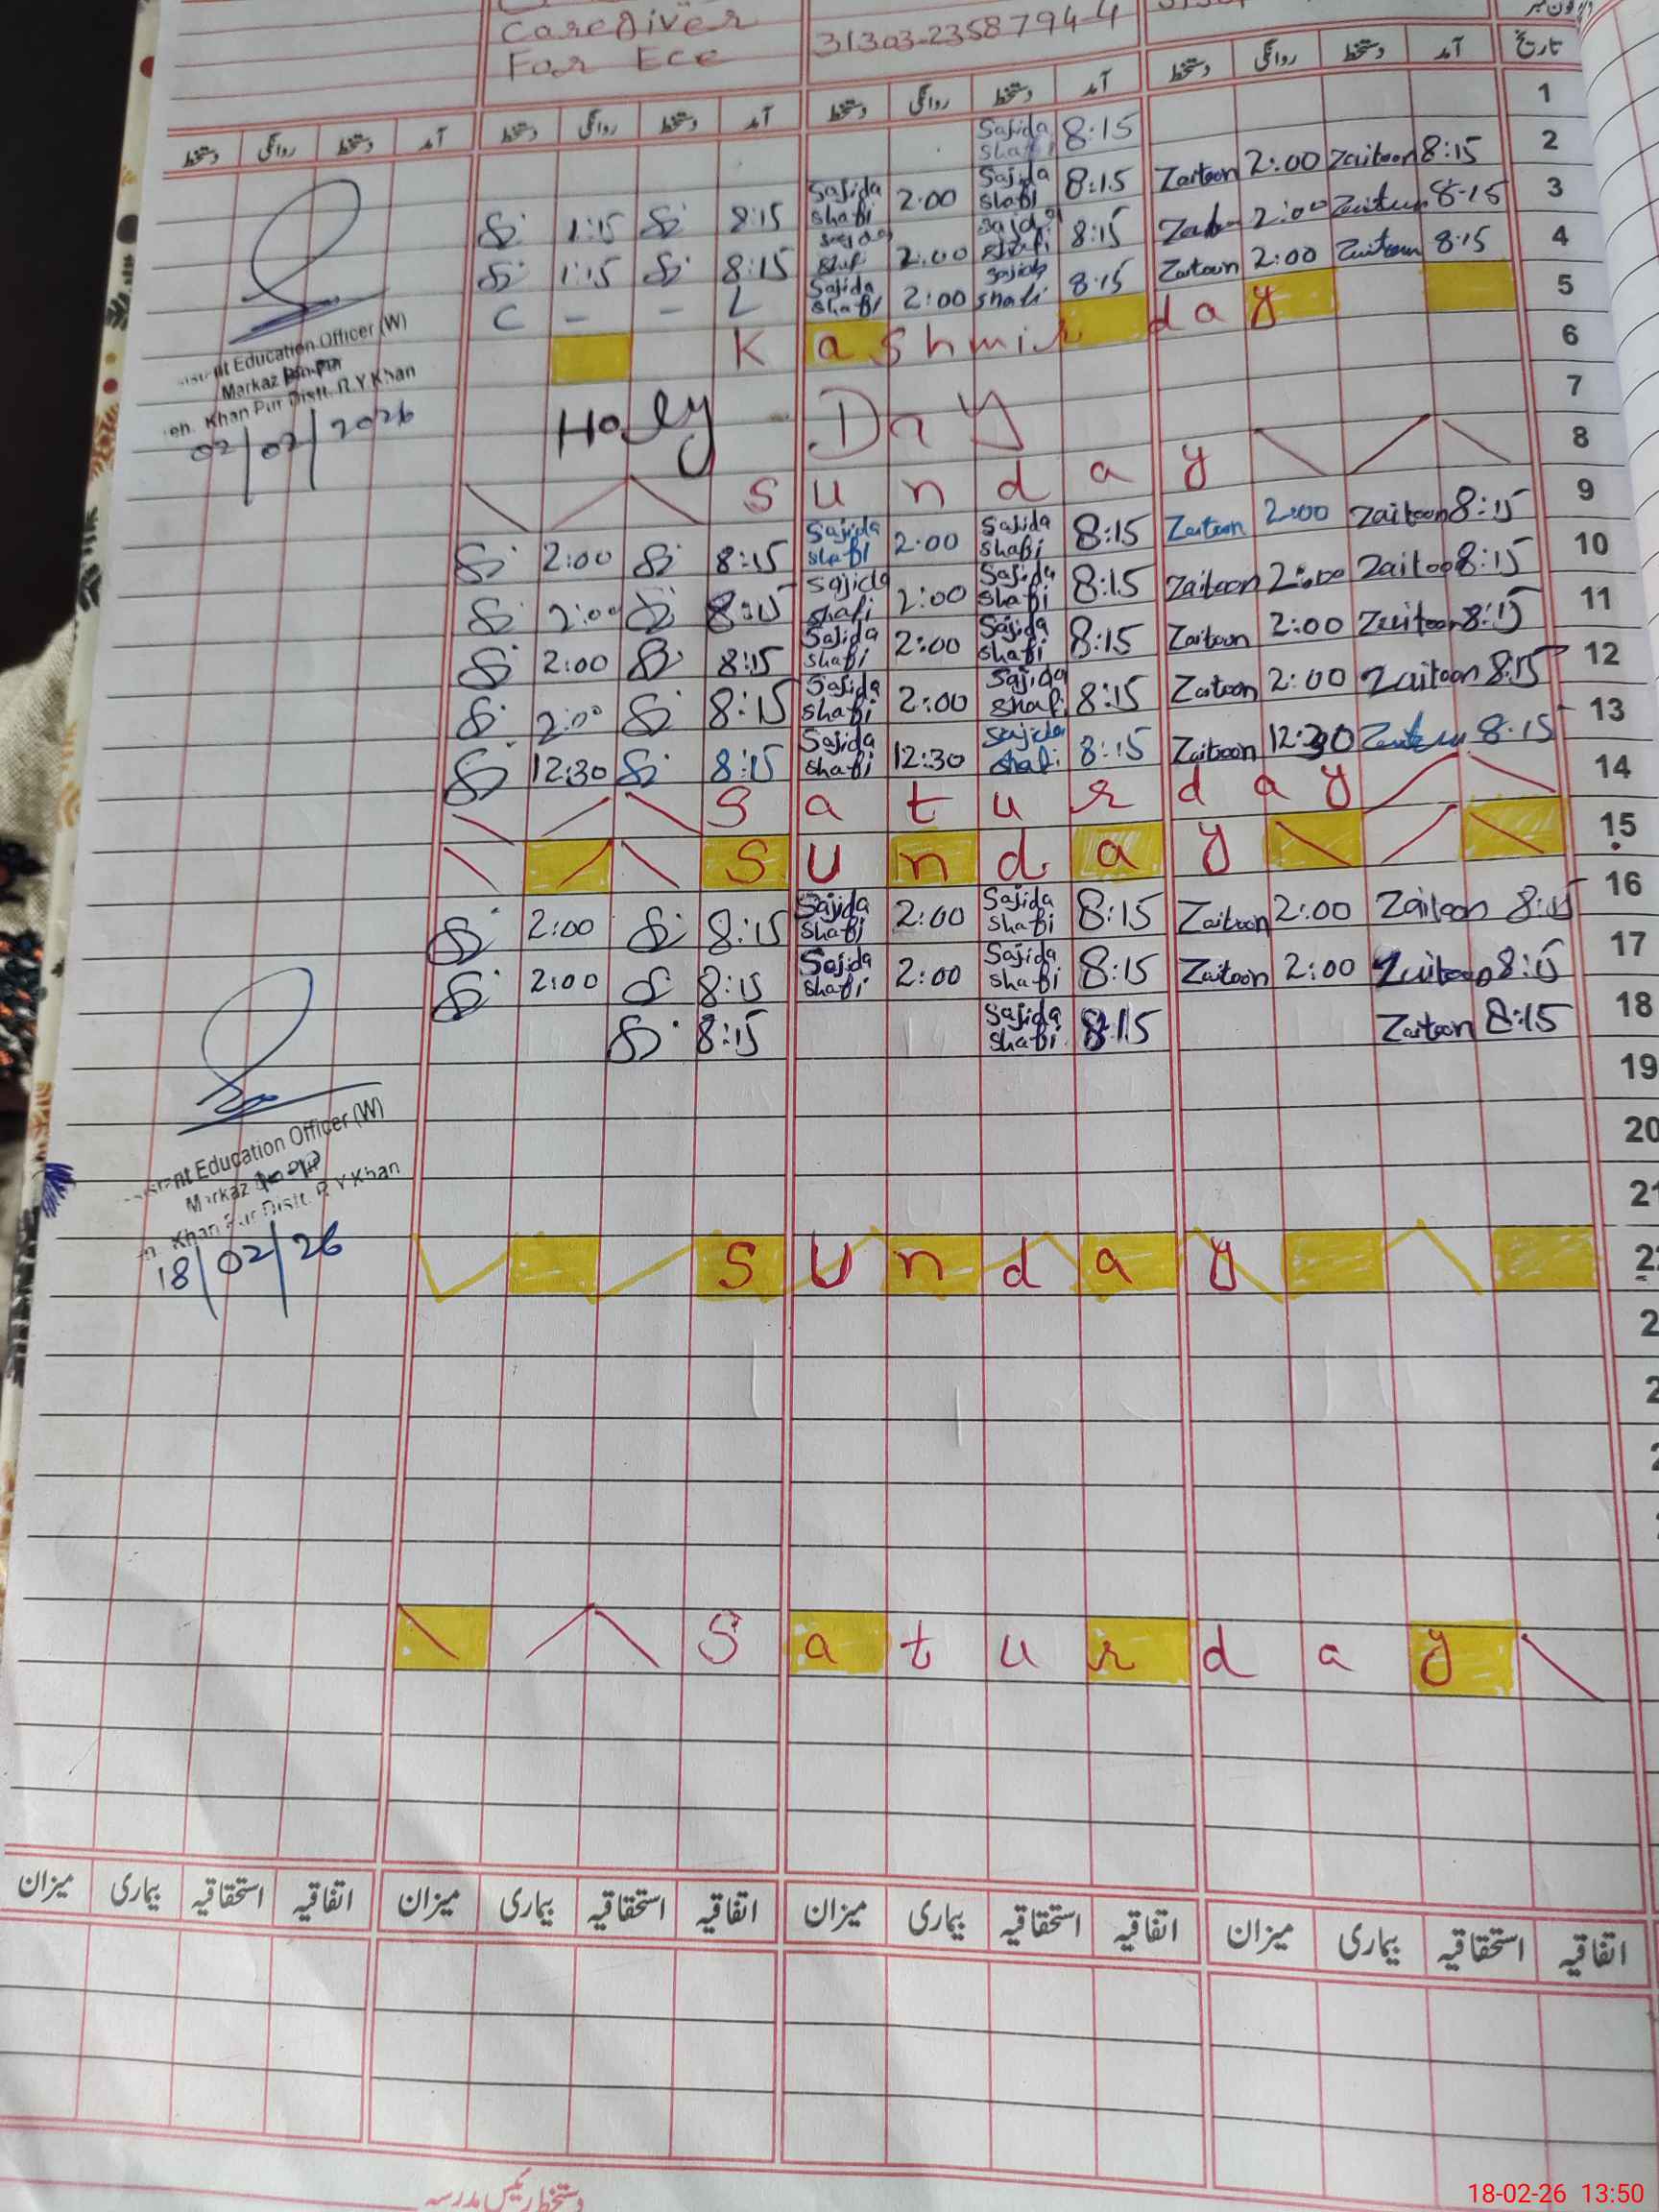 Caregiver
For Ece
31303-2358794-4
تاریخ آمد دستخط روانگی دستخط آمد دستخط روانگی دستخط آمد دستخط روانگی دستخط آمد دستخط روانگی دستخط
1
Sajida Shafi 8:15
2
Zaitoon 2:00 Zaitoon 8:15
Sajida Shafi 2:00 Sajida Shafi 8:15
1:15 8:15
3
2:00 Zaitun 8:15
2:00 Shafi 8:15
1:15 8:15
4
Zaitoon 2:00 Zaitoon 8:15
Sajida Shafi 2:00 Sajida Shafi 8:15
C - - L
5
Kashmir day
6
Holy Day
7
8
Sunday
9
2:00 8:15 Sajida Shafi 2:00 Sajida Shafi 8:15 Zaitoon 2:00 Zaitoon 8:15
10
2:00 8:15 Sajida Shafi 2:00 Sajida Shafi 8:15 Zaitoon 2:00 Zaitoon 8:15
11
2:00 8:15 Sajida Shafi 2:00 Sajida Shafi 8:15 Zaitoon 2:00 Zaitoon 8:15
12
2:00 8:15 Sajida Shafi 2:00 Sajida Shafi 8:15 Zaitoon 2:00 Zaitoon 8:15
13
12:30 8:15 Sajida Shafi 12:30 Sajida Shafi 8:15 Zaitoon 12:30 8:15
14
Saturday
15
Sunday
16
2:00 8:15 Sajida Shafi 2:00 Sajida Shafi 8:15 Zaitoon 2:00 Zaitoon 8:15
17
2:00 8:15 Sajida Shafi 2:00 Sajida Shafi 8:15 Zaitoon 2:00 Zaitoon 8:15
18
8:15 Sajida Shafi 8:15 Zaitoon 8:15
19
20
21
22
Sunday
Saturday
Education Officer (W)
Markaz
Khan Pur Distt. R.Y.Khan
02/02/2026
Education Officer (W)
Markaz
Khan Pur Distt. R Y Khan
18/02/26
اتفاقیہ استحقاقیہ بیماری میزان اتفاقیہ استحقاقیہ بیماری میزان اتفاقیہ استحقاقیہ بیماری میزان اتفاقیہ استحقاقیہ بیماری میزان
دستخط رئیس مدرسہ
18-02-26 13:50